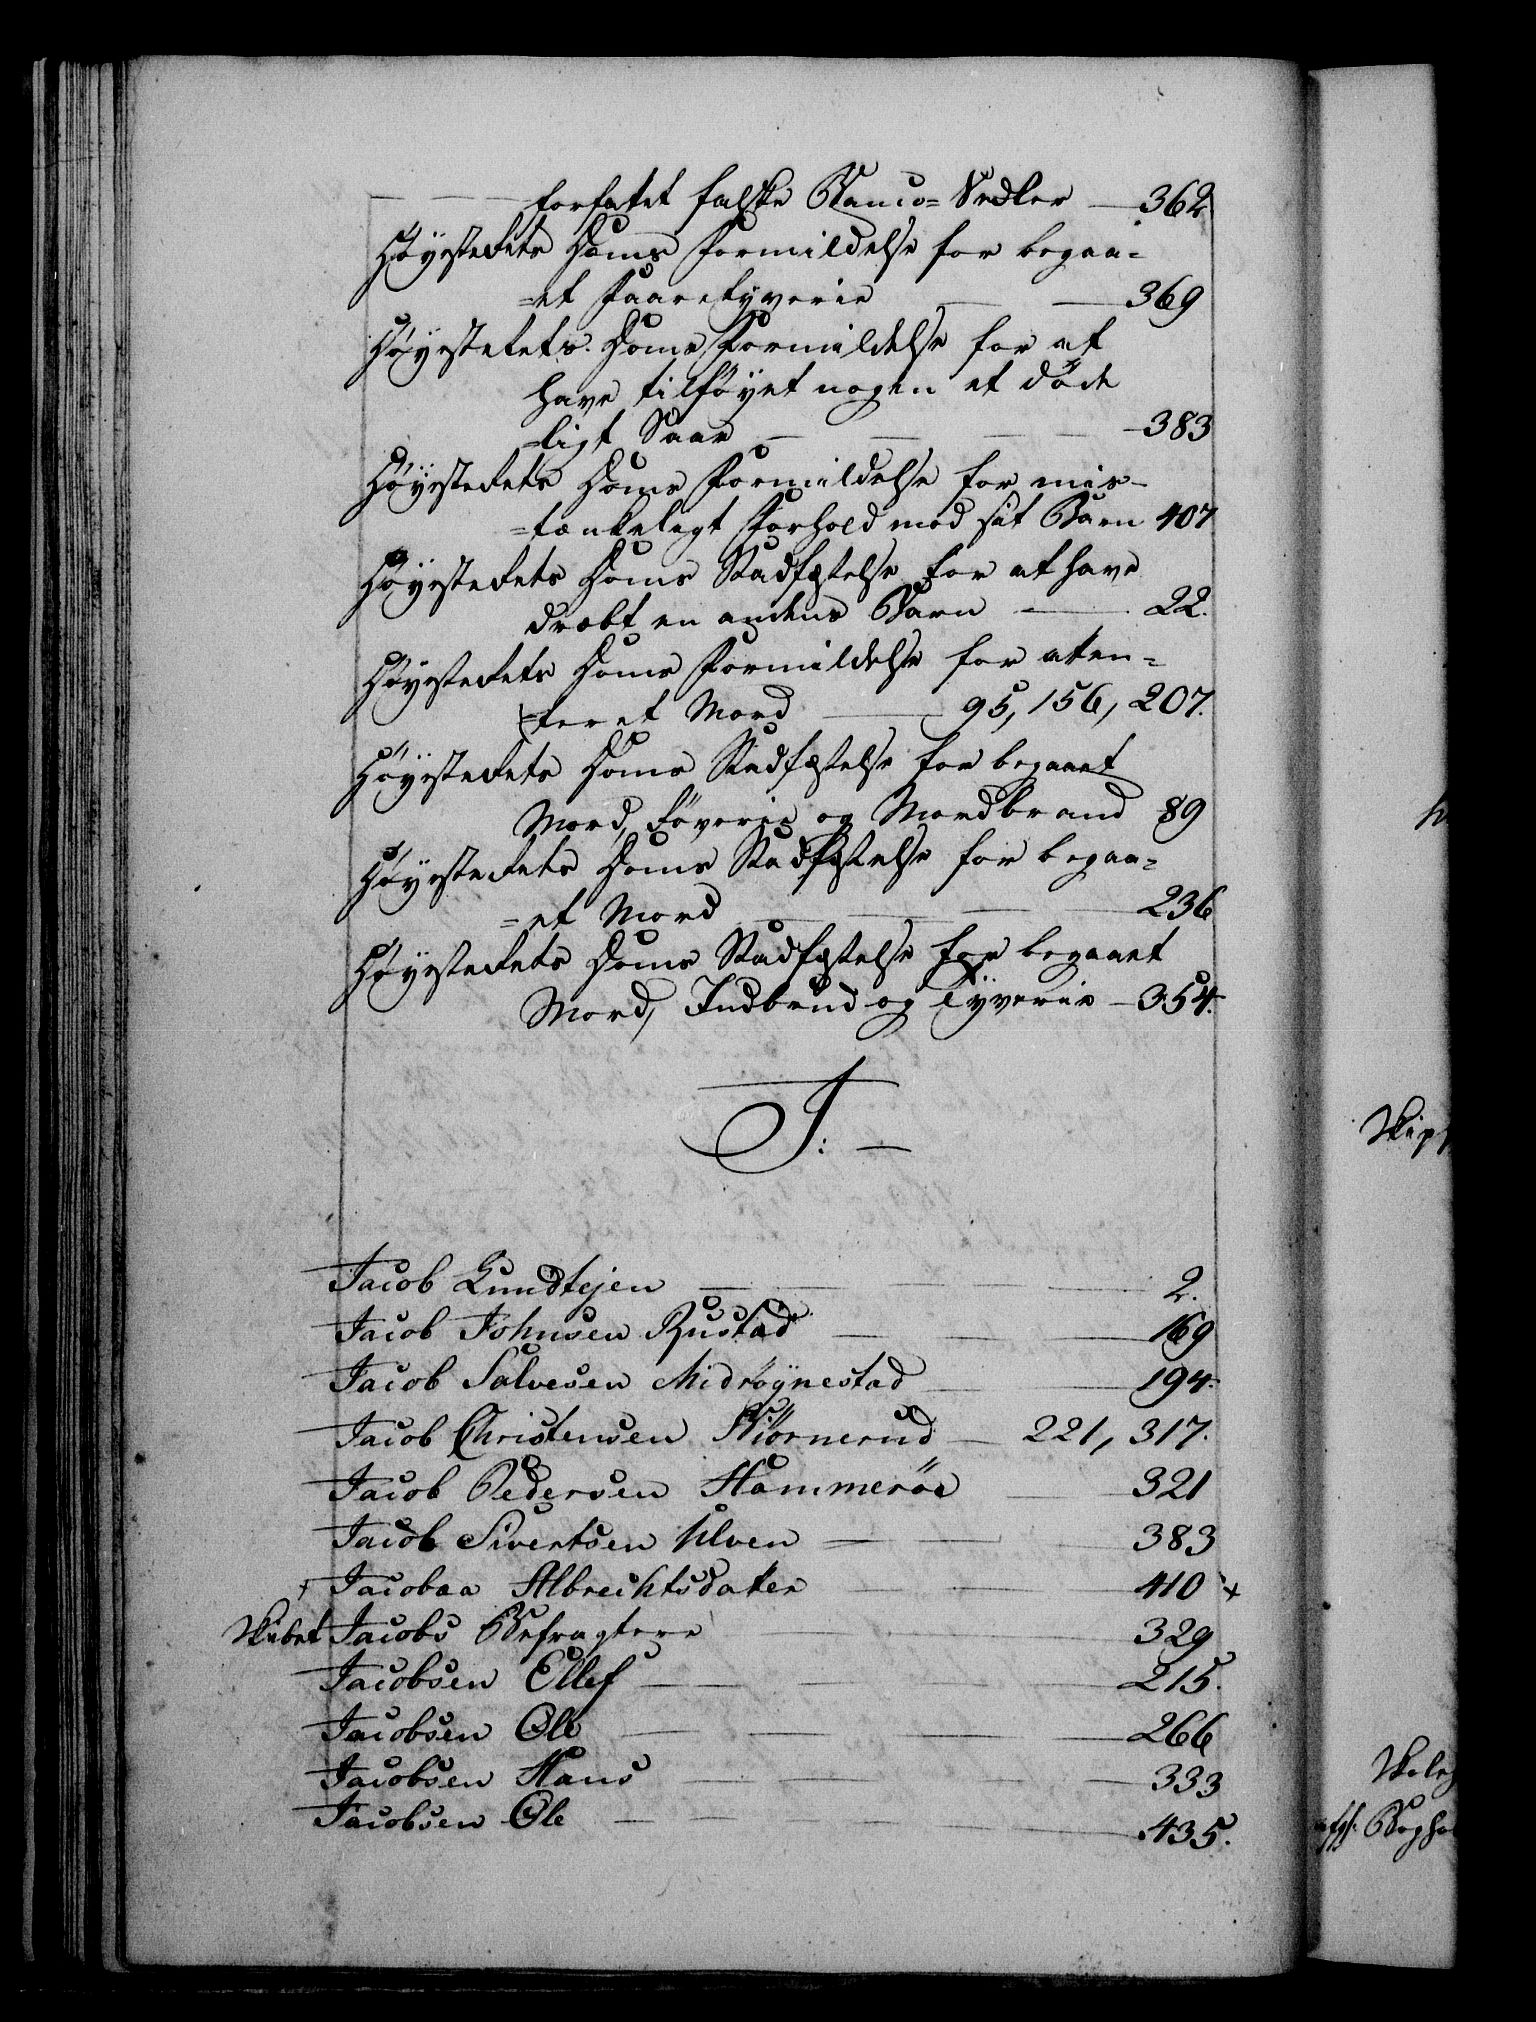 — — forfatet falske Banco= Sedler — 362
Høyesterets Doms Formildelse for begaa=
=et Faaretyverie — — 369
Høyesterets Doms Formildelse for at
have tilføyet nogen et döde
=ligt Saar — — — — 383
Høÿesterets Doms Formildelse for mis=
=tænkeligt Forhold mod sit Barn 407
Høyesterets Doms Stadfæstelse for at have
dræbt en andens Barn — 22.
Høyesterets Doms Formildelse for aten=
=teret Mord — 95, 156, 207.
Høyesterets Doms Stadfæstelse for begaaet
Mord, Røverie og Mordbrand 89
Høyesterets Doms Stadfæstelse for begaa=
=et Mord — — — 236
Høyesterets Doms Stadfæstelse for begaaet
Mord, Indbrud og Tyverie — 354.
J: —
Jacob Gundtejen — — — 2.
Jacob Johnsen Rustad — — — 169
Jacob Salvesen Midröÿnestad — — 194.
Jacob Christensen Kiörnerud — 221, 317.
Jacob Pedersen Hammeröe — — 321
Jacob Sivertsen Ulven — — — 383
+ Jacobaa Albrechtsdatter — — 410 +
Skibet Jacobs Befragtere — — — 329
Jacobsen Ellef — — — 215.
Jacobsen Ole — — — 266
Jacobsen Hans — — — 333
Jacobsen Ole — — — 435.